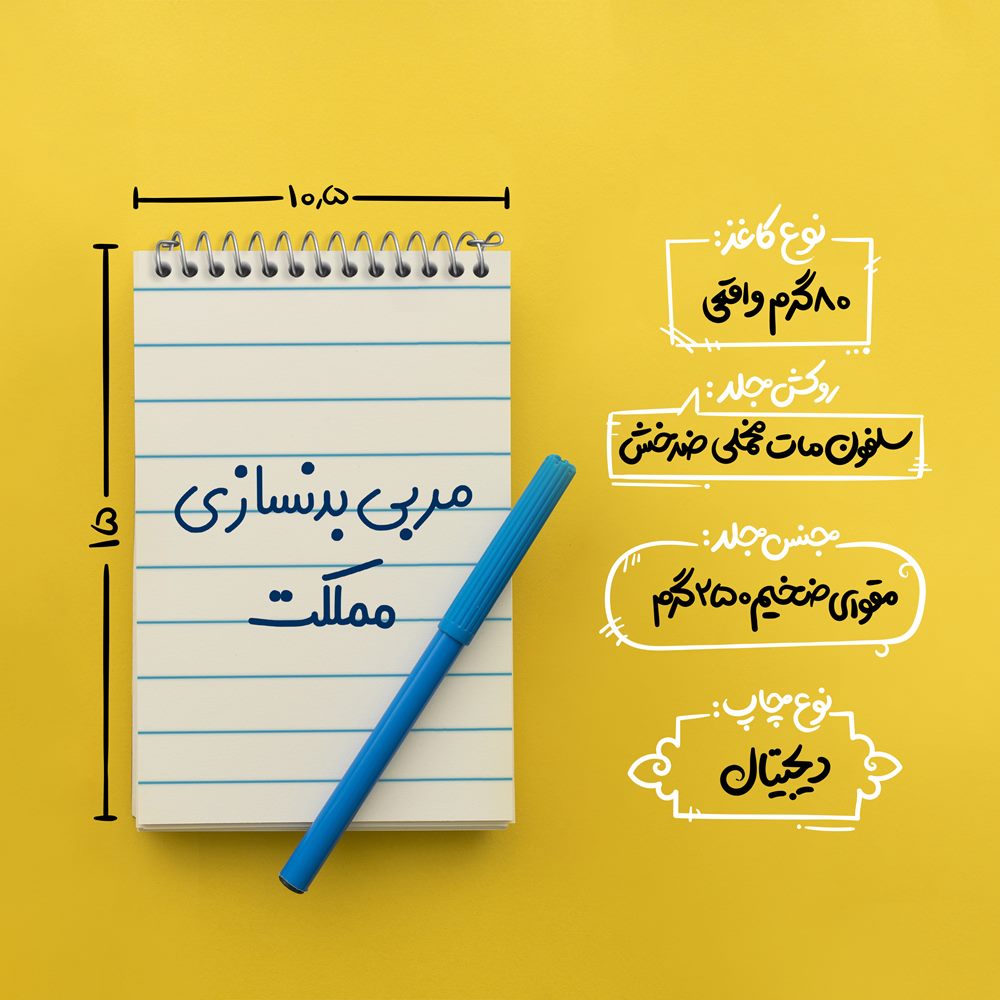 ۱۰٫۵
۱۵
مربی بدنسازی
مملکت
نوع کاغذ:
۸۰گرم واقعی
روکش جلد:
سلفون مات مخملی ضدخش
جنس جلد:
مقوای ضخیم ۲۵۰گرم
نوع چاپ:
دیجیتال